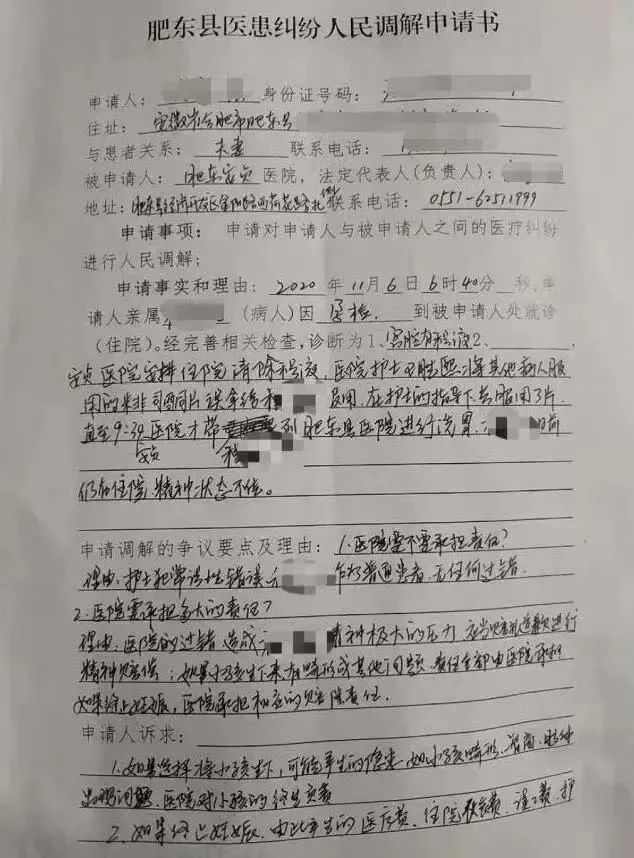 肥东县医患纠纷人民调解申请书
申请人： 身份证号码：
住址：安徽省合肥市肥东县
与患者关系：夫妻 联系电话：
被申请人：肥东安贞医院，法定代表人(负责人)：
地址：肥东县经济开发区 联系电话：0551-62511999
申请事项：申请对申请人与被申请人之间的医疗纠纷
进行人民调解；
申请事实和理由：2020年11月6日6时40分 秒，申
请人亲属 (病人)因 孕检. 到被申请人处就诊
(住院)。经完善相关检查，诊断为1、宫腔有积液2、
安贞医院安排住院清除积液，医院护士 将其他病人服
用的米非司酮片误拿给 服用，在护士的指导下共服用3片
直至9:30医院才带 到肥东县医院进行洗胃， 目前
安贞
仍在住院，精神状态不佳。
申请调解的争议要点及理由：1.医院需不需承担责任？
理由：护士犯常识性错误， 作为普通患者，无任何过错.
2.医院需承担多大的责任？
理由：医院的过错造成 精神极大的压力，应当 进行
精神赔偿；如果小孩生下来有畸形或其他问题，责任全部由医院承担
如果终止妊娠，医院承担相应的赔偿责任.
申请人诉求：
1.如果选择将小孩生下，可能产生的隐患，如小孩畸形、智商、精神
出现问题，医院对小孩的终生负责
2.如果终止妊娠，由此产生的医疗费、住院 费、误工费、护